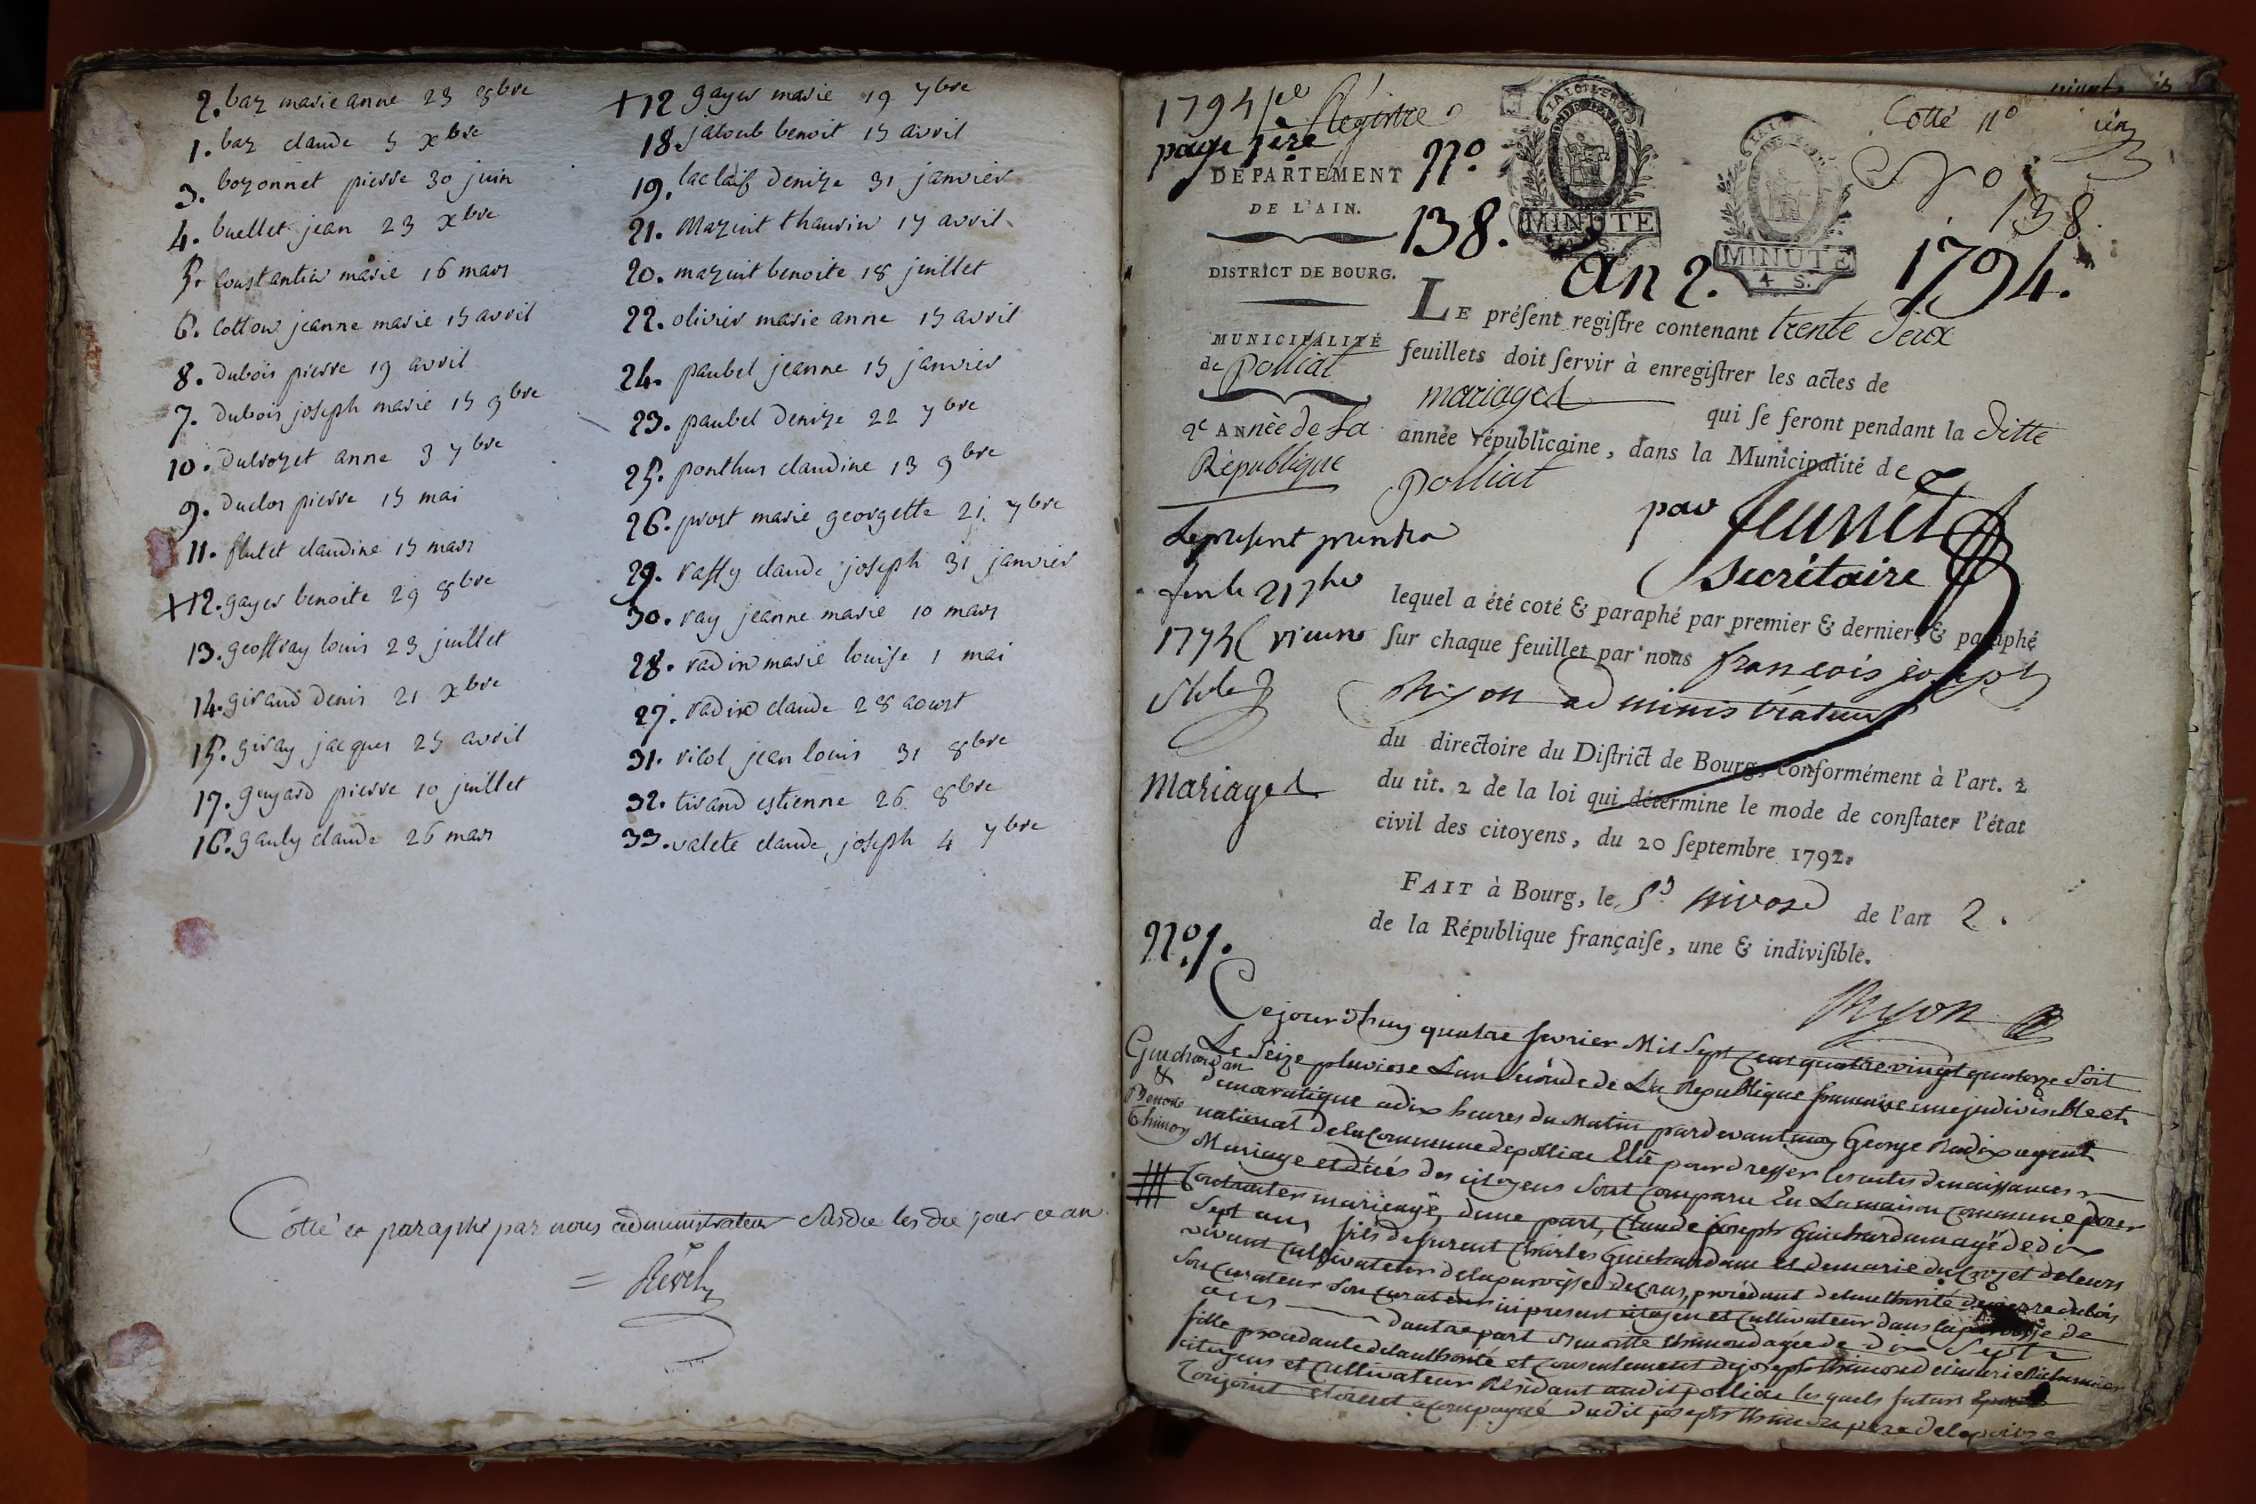 2. baz marie anne 23 8bre
1. baz claude 5 xbre
3. bozonnet pierre 30 juin
4. buellet jean 23 xbre
5. constantin marie 16 mars
6. cotton jeanne marie 15 avril
8. Dubois pierre 19 avril
7. dubois joseph marie 15 9bre
10. Ducrozet anne 3 7bre
9. Duclos pierre 15 mai
11. flutet claudine 15 mars
+12. gayer benoite 29 8bre
13. geoffray louis 23 juillet
14. giraud Denis 21 xbre
15. giray jacques 25 avril
17. guyard pierre 10 juillet
16. gauly claude 26 mars
+12 gayer marie 19 7bre
18. jaloub benoit 15 avril
19. laclaif denize 31 janvier
21. Mazuit thaurin 15 avril
20. mazuit benoite 18 juillet
22. olivier marie anne 15 avril
24. paubel jeanne 15 janvier
23. paubel Denize 22 7bre
25. ponthus claudine 13 9bre
26. prost marie georgette 21. 7bre
29. raffy claude joseph 31 janvier
30. ray jeanne marie 10 mars
28. radix marie louise 1 mai
27. radix claude 28 aoust
31. rilot jean louis 31 8bre
32. tirand estienne 26 8bre
33. valete claude, joseph 4 7bre
Cotté et paraphé par nous administrateur susdit les dit jour et an
= Revel
1794 Régistre
page 1ère
DÉPARTEMENT
DE L'AIN.
DISTRICT DE BOURG.
MUNICIPALITÉ
de Polliat
2e ANnée de La
République
Le present prendra
fin le 21 7bre
1794 ( vieux
stile )
Mariages
No. 138.
MINUTE
MINUTE
4 S.
Cotté no un
No 138
an 2. 1794.
LE préſent regiſtre contenant trente deux
feuillets doit ſervir à enregiſtrer les actes de
mariages qui ſe feront pendant la ditte
année républicaine, dans la Municipalité de
Polliat
par
Secrétaire
lequel a été coté & paraphé par premier & dernier, & paraphé
ſur chaque feuillet par nous françois joseph
administrateur
du directoire du Diſtrict de Bourg, conformément à l'art. 2
du tit. 2 de la loi qui détermine le mode de conſtater l'état
civil des citoyens, du 20 ſeptembre 1792.
FAIT à Bourg, le 5 nivose de l'an 2.
de la République françaiſe, une & indiviſible.
No. 1.
Guichardan
&
Benoite
Thimon
Cejourdhuy quatre fevrier Mil Sept Cent quatre vingt quatorze Soit
Le Seize pluviose Lan Seconde de La Republique francaise une indivisible et
democratique a dix heures du Matin pardevant moy George Radix agent
national de la Commune de polliat Elu pour dresser les actes de naissances
Mariage et décés des citoyens Sont Comparu En La maison Commune pour
Contracter mariage, dune part, Claude joseph Guichardan agé de dix
Sept ans fils de furent Charles Guichardan et de marie du Crozet de leurs
vivant Cultivateur de la paroisse de Cras, procédant de lauthorité de pierre dubois
Son Curateur ici present citoyen et Cultivateur dans la paroisse de
Cras dautre part benoitte thimon agée de dix Sept
fille procedante de lauthorité et Consentement de joseph thimon et
citoyens et Cultivateur Résidant audit polliat les quels futurs Epoux
Conjoint accompagné dudit joseph thimon pere de lepouse